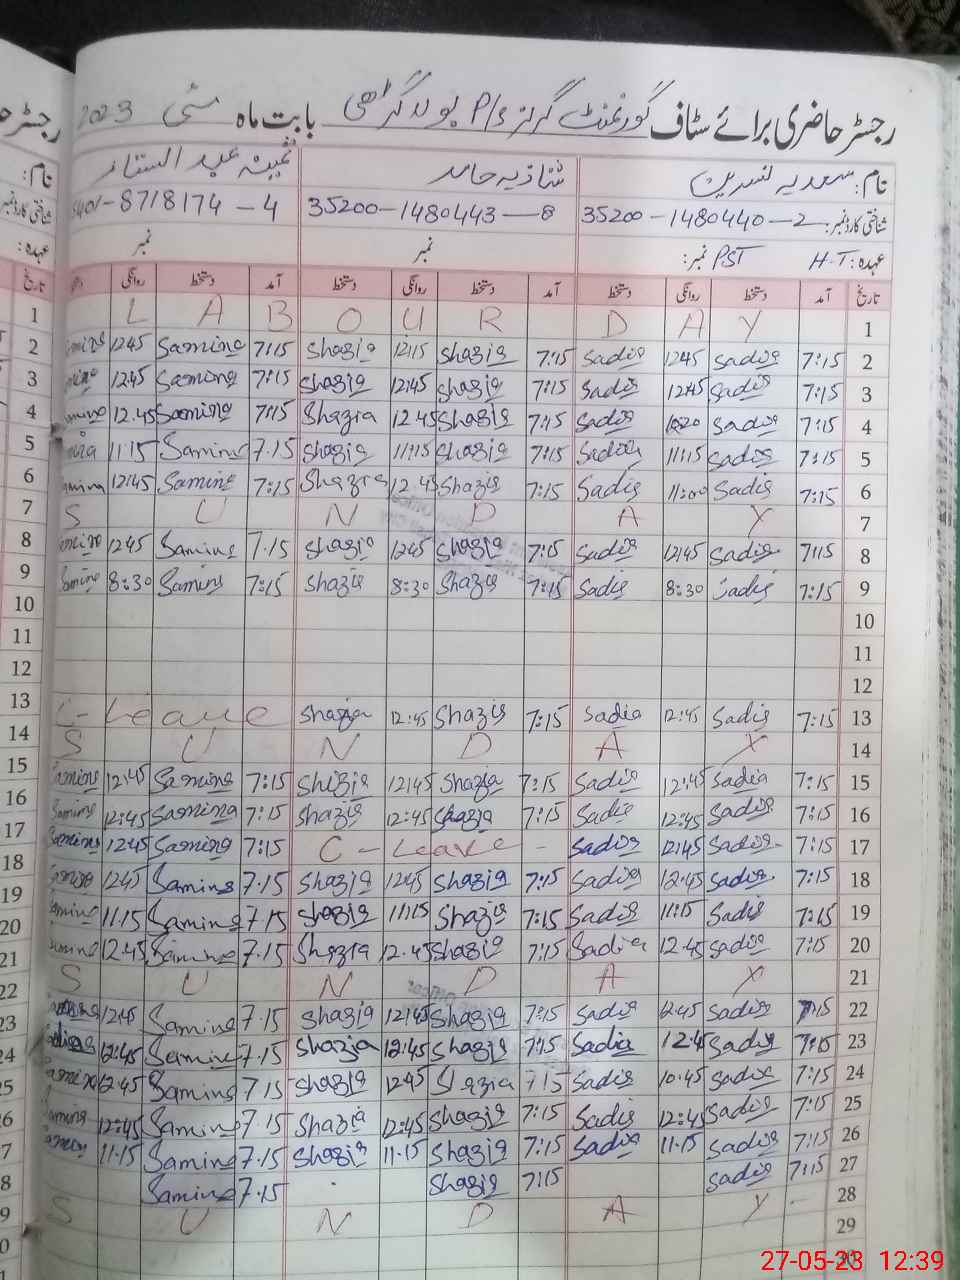 رجسٹر حاضری برائے سٹاف گورنمنٹ گرلز P/S بابت ماہ مئی 2023
نام: سعدیہ نسرین شازیہ حامد ثمینہ عبدالستار
شناختی کارڈ نمبر: 35200-1480440-2 35200-1480443-8 5401-8718174-4
عہدہ: H.T PST نمبر: نمبر نمبر
تاریخ آمد دستخط روانگی دستخط آمد دستخط روانگی دستخط آمد دستخط روانگی تاریخ
1 L A B O U R D A Y 1
2 12:45 Samina 7:15 Shazia 12:15 Shazia 7:15 Sadia 12:45 Sadia 7:15 2
3 12:45 Samina 7:15 Shazia 12:45 Shazia 7:15 Sadia 12:45 Sadia 7:15 3
4 12.45 Samina 7:15 Shazia 12.45 Shazia 7:15 Sadia Sadia 7:15 4
5 11:15 Samina 7.15 Shazia 11:15 Shazia 7:15 Sadia 11:15 Sadia 7:15 5
6 Samina 12:45 Samina 7:15 Shazia 12.45 Shazia 7:15 Sadia 11:00 Sadia 7:15 6
7 S U N D A Y 7
8 Samina 12:45 Samina 7.15 Shazia 12:45 Shazia 7:15 Sadia 12:45 Sadia 7:15 8
9 Samina 8:30 Samina 7:15 Shazia 8:30 Shazia 7:15 Sadia 8:30 Sadia 7:15 9
10 10
11 11
12 12
13 C-Leave Shazia 12:45 Shazia 7:15 Sadia 12:45 Sadia 7:15 13
14 S U N D A Y 14
15 Samina 12:45 Samina 7:15 Shazia 12:45 Shazia 7:15 Sadia 12:45 Sadia 7:15 15
16 Samina 12:45 Samina 7:15 Shazia 12:45 Shazia 7:15 Sadia 12:45 Sadia 7:15 16
17 Samina 12:45 Samina 7:15 C-Leave - Sadia 12:45 Sadia 7:15 17
18 Samina 12:45 Samina 7.15 Shazia 12:45 Shazia 7:15 Sadia 12:45 Sadia 7:15 18
19 Samina 11.15 Samina 7.15 Shazia 11:15 Shazia 7:15 Sadia 11:15 Sadia 7:15 19
20 Samina 12.45 Samina 7.15 Shazia 12.45 Shazia 7:15 Sadia 12.45 Sadia 7:15 20
21 S U N D A Y 21
22 12:45 Samina 7.15 Shazia 12:45 Shazia 7:15 Sadia 12:45 Sadia 7:15 22
23 12:45 Samina 7.15 Shazia 12:45 Shazia 7:15 Sadia 12:45 Sadia 7:15 23
24 Samina 12:45 Samina 7.15 Shazia 12:45 Shazia 7:15 Sadia 10.45 Sadia 7:15 24
25 Samina 12:45 Samina 7.15 Shazia 12:45 Shazia 7:15 Sadia 12:45 Sadia 7:15 25
26 11.15 Samina 7.15 Shazia 11.15 Shazia 7:15 Sadia 11.15 Sadia 7:15 26
Samina 7.15 Shazia 7:15 Sadia 7:15 27
S U N D A Y - 28
29
30
27-05-23 12:39